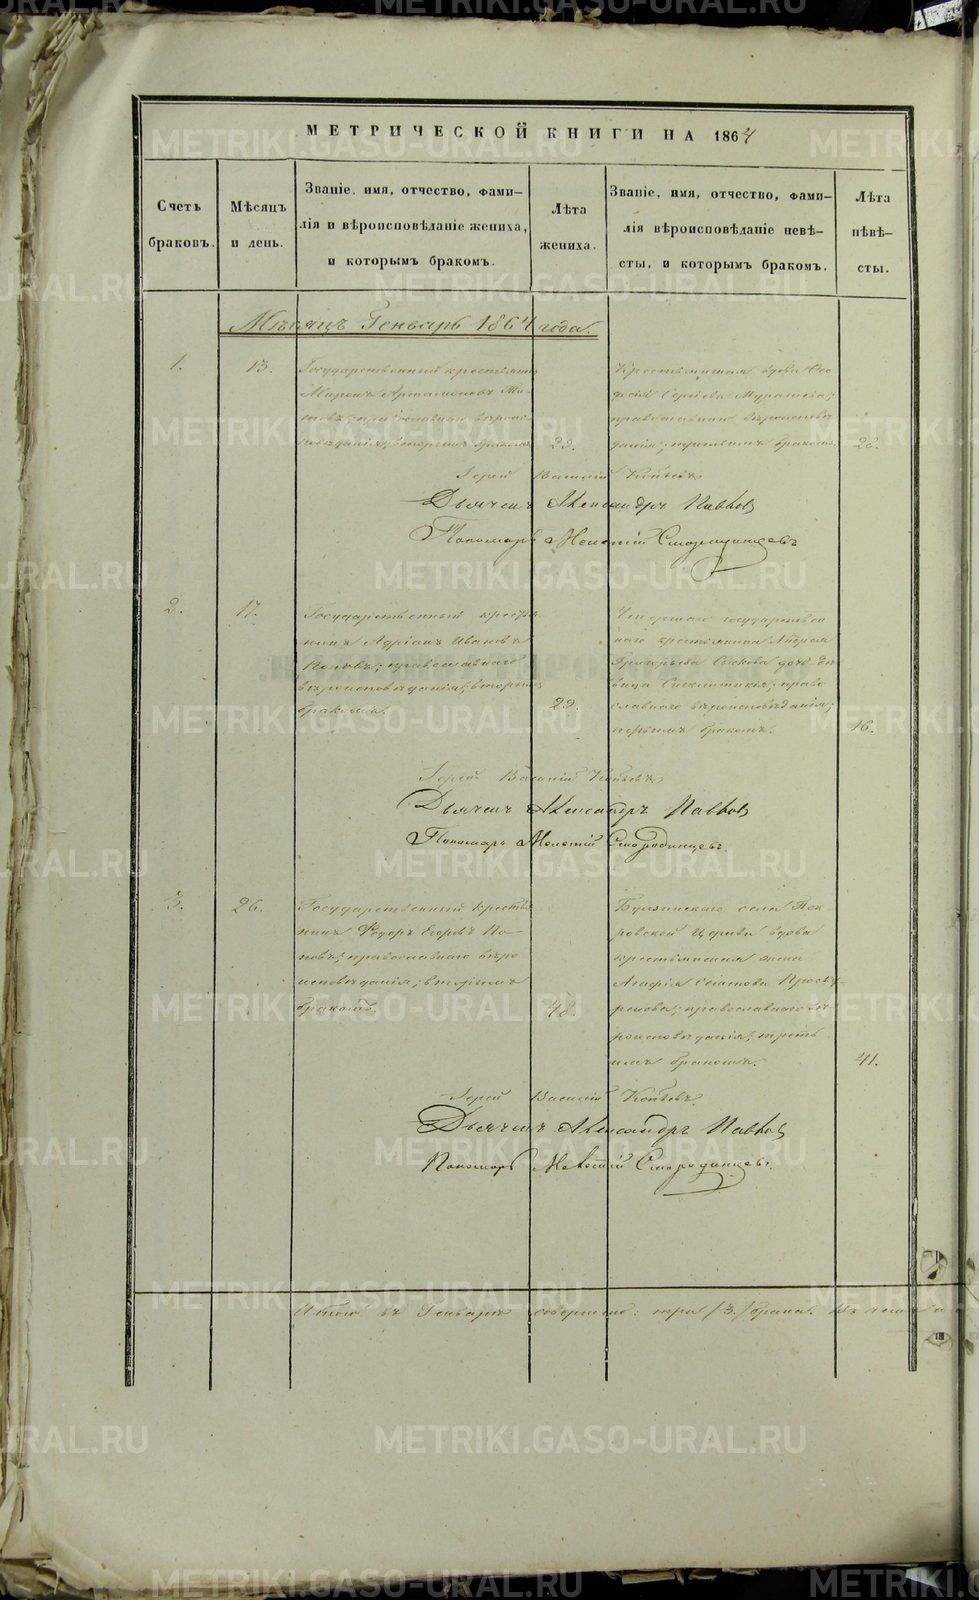 МЕТРИЧЕСКОЙ КНИГИ НА 1864
Счетъ
браковъ.
Мѣсяцъ
и день.
Званіе, имя, отчество, фами-
лія и вѣроисповѣданіе жениха,
и которымъ бракомъ.
Лѣта
жениха.
Званіе, имя, отчество, фами-
лія вѣроисповѣданіе невѣ-
сты, и которымъ бракомъ.
Лѣта
невѣ-
сты.
Мѣсяцъ Генварь 1864 года.
1.
13.
Государственный крестьянинъ
Миронъ Артамоновъ
православнаго вѣроис-
повѣданія; вторымъ бракомъ
29.
Крестьянская вдова
Сергѣева
православнаго вѣроисповѣ-
данія; бракомъ
28.
Іерей Василій
Дьячекъ Александръ Павлов
Пономарь Мелетій Смородинцевъ
2.
17.
Государственный крестья-
нинъ Адріанъ Ивановъ
Поповъ; православнаго
вѣроисповѣданія; вторымъ
бракомъ.
29.
государствен-
наго крестьянина Андрея
Григорьева дочь дѣ-
вица Синклитикія; право-
славнаго вѣроисповѣданія;
первымъ бракомъ.
16.
Іерей Василій
Дьячекъ Александръ Павлов
Пономарь Мелетій Смородинцевъ.
3.
26.
Государственный крестья-
нинъ Ѳедоръ Егоровъ По-
повъ; православнаго вѣро-
исповѣданія; вторымъ
бракомъ.
48.
села Пок-
ровской Церкви вдова
крестьянская жена
Агафія
православнаго вѣ-
роисповѣданія; треть-
имъ бракомъ.
41.
Іерей Василій
Дьячекъ Александръ Павлов
Пономарь Мелетій Смородинцевъ.
Итого въ Генварѣ совершено: три /3./ брака.
METRIKI.GASO-URAL.RU